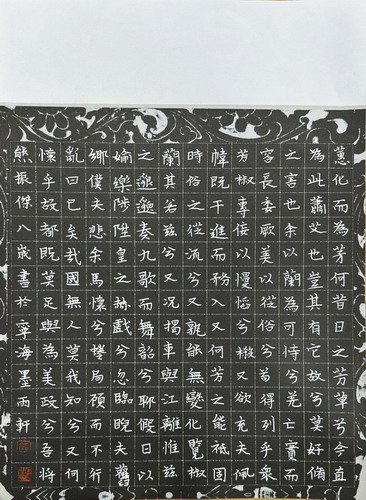 蕙化而為芳何昔日之芳草兮今直
為此蕭艾也豈其有它故兮莫好脩
之害也余以蘭為可恃兮羌亡實而
容長委厥美以從俗兮苟得列乎衆
芳椒專佞以慢慆兮樧又欲充夫佩
幃既干進而務入又何芳之能祗固
時俗之從流兮又孰能無變化覽椒
蘭其若茲兮又況揭車與江離惟茲
之邈邈奏九歌而舞韶兮聊假日以
媮樂陟陞皇之赫戲兮忽臨睨夫舊
鄉僕夫悲余馬懷兮蜷局顧而不行
亂曰已矣哉國無人莫我知兮又何
懷乎故都既莫足與為美政兮吾將
熊振傑八歲書於寧海墨雨軒